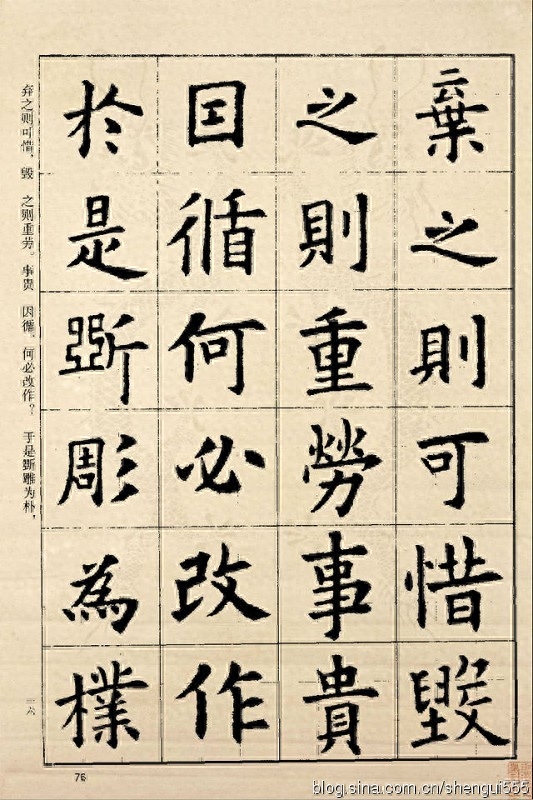 棄之則可惜毀
之則重勞事貴
囙循何必改作
於是斵彫為樸
弃之则可惜，毁 之则重劳。事贵 因循，何必改作？ 于是斲雕为朴，
一六
76
blog.sina.com.cn/shengui555